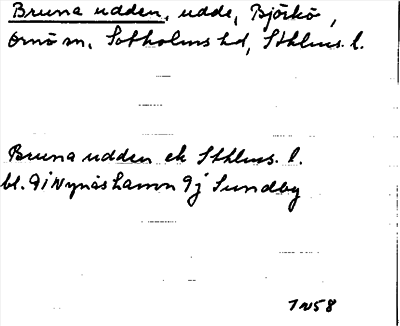 Bruna udden, udde, Björkö,
Ornö sn, Sotholms hd, Sthlms. l.
Bruna udden ek Sthlms. l.
bl. 9i Nynäshamn 9j Sundby
1958